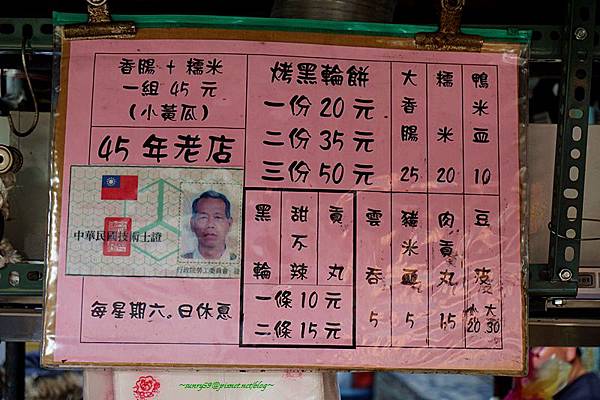 香腸+糯米
一組 45 元
(小黃瓜)
45 年老店
中華民國技術士證
行政院勞工委員會
每星期六.日休息
烤黑輪餅
一份 20 元
二份 35 元
三份 50 元
大香腸 25
糯米 20
鴨米血 10
黑輪
甜不辣
貢丸
一條 10 元
二條 15 元
雲吞 5
豬米血 5
肉貢丸 15
豆漿 小20 大30
~sunry59@pixnet.net/blog~